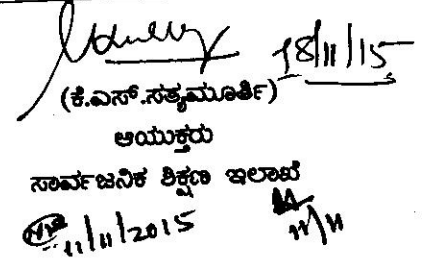 18/11/15
(ಕೆ.ಎಸ್.ಸತ್ಯಮೂರ್ತಿ)
ಆಯುಕ್ತರು
ಸಾರ್ವಜನಿಕ ಶಿಕ್ಷಣ ಇಲಾಖೆ
11/11/2015
11/11